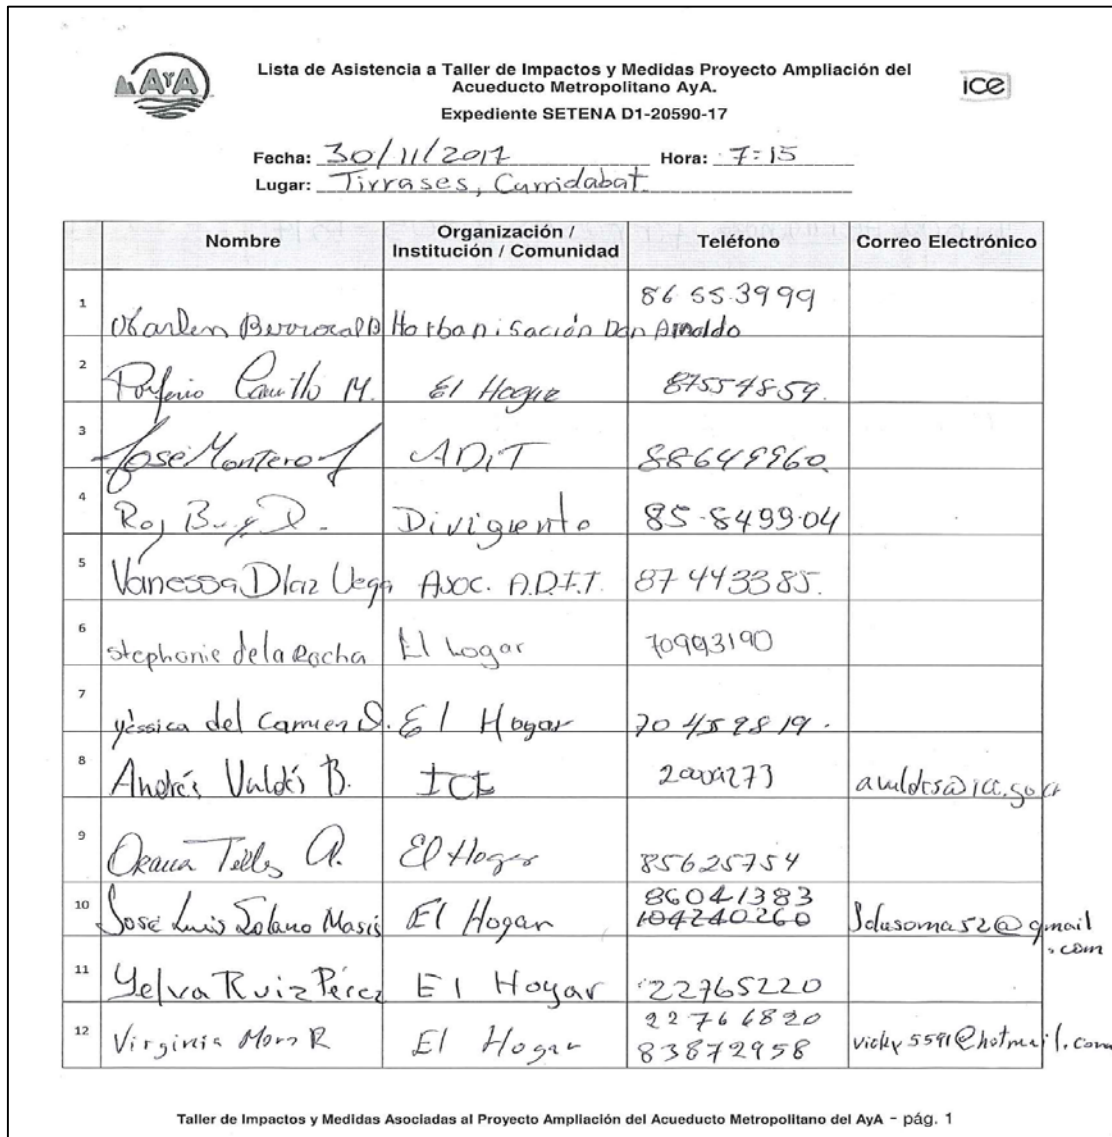 AyA
Lista de Asistencia a Taller de Impactos y Medidas Proyecto Ampliación del
Acueducto Metropolitano AyA.
ice
Expediente SETENA D1-20590-17
Fecha: 30/11/2017 Hora: 7:15
Lugar: Tirrases, Curridabat
Nombre Organización / Institución / Comunidad Teléfono Correo Electrónico
1 Berrocal B Horbanisación Don Arnoldo 86 55.3999
2 Porfirio Carrillo M. El Hogar 87554859.
3 José Montero J ADIT 88649960
4 Roy 85-8499-04
5 Vanessa Díaz Vega Asoc. A.D.I.T. 87443385.
6 stephanie de la Rocha El hogar 70993190
7 yéssica del Carmen D. El Hogar 70459819.
8 Andrés Valdés B. ICE
9 Tellez A. El Hogar 85625754
10 José Luis Solano Masis El Hogar 86041383 104240260 Jolusoma52@gmail.com
11 Yelva Ruiz Pérez El Hogar 22765220
12 Virginia Mora R El Hogar 22766820 83872958 vicky5591@hotmail.com
Taller de Impactos y Medidas Asociadas al Proyecto Ampliación del Acueducto Metropolitano del AyA - pág. 1